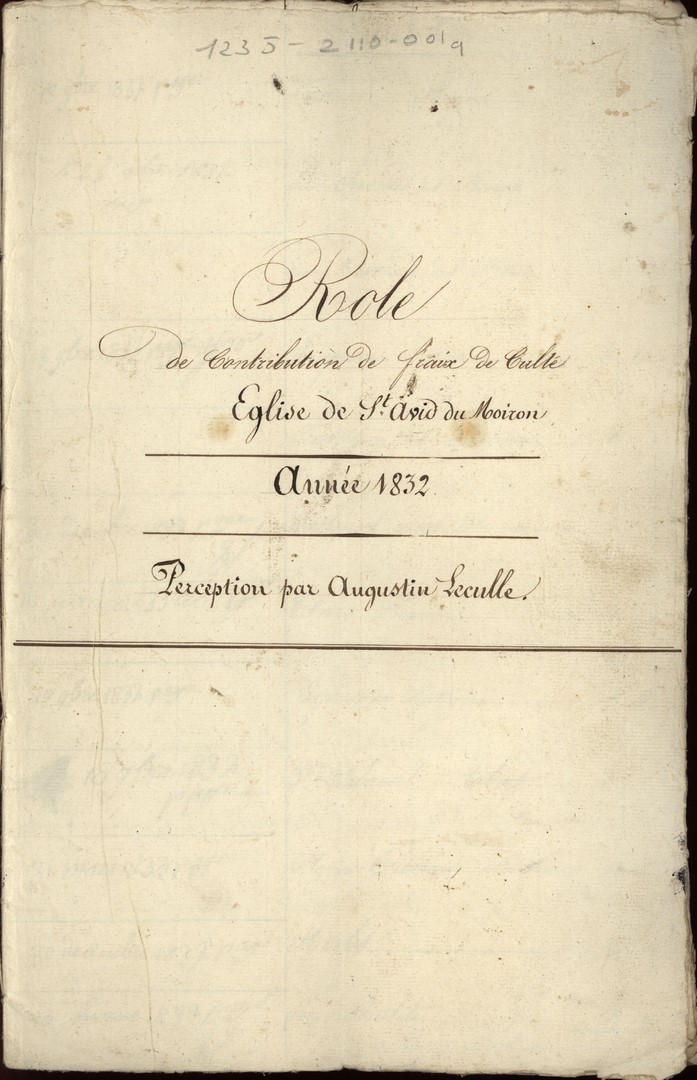 123 J - 2110-001a
Role
de Contribution de fraix de Culte
Eglise de St. Avid du Moiron
Année 1832
Perception par Augustin Leculle.